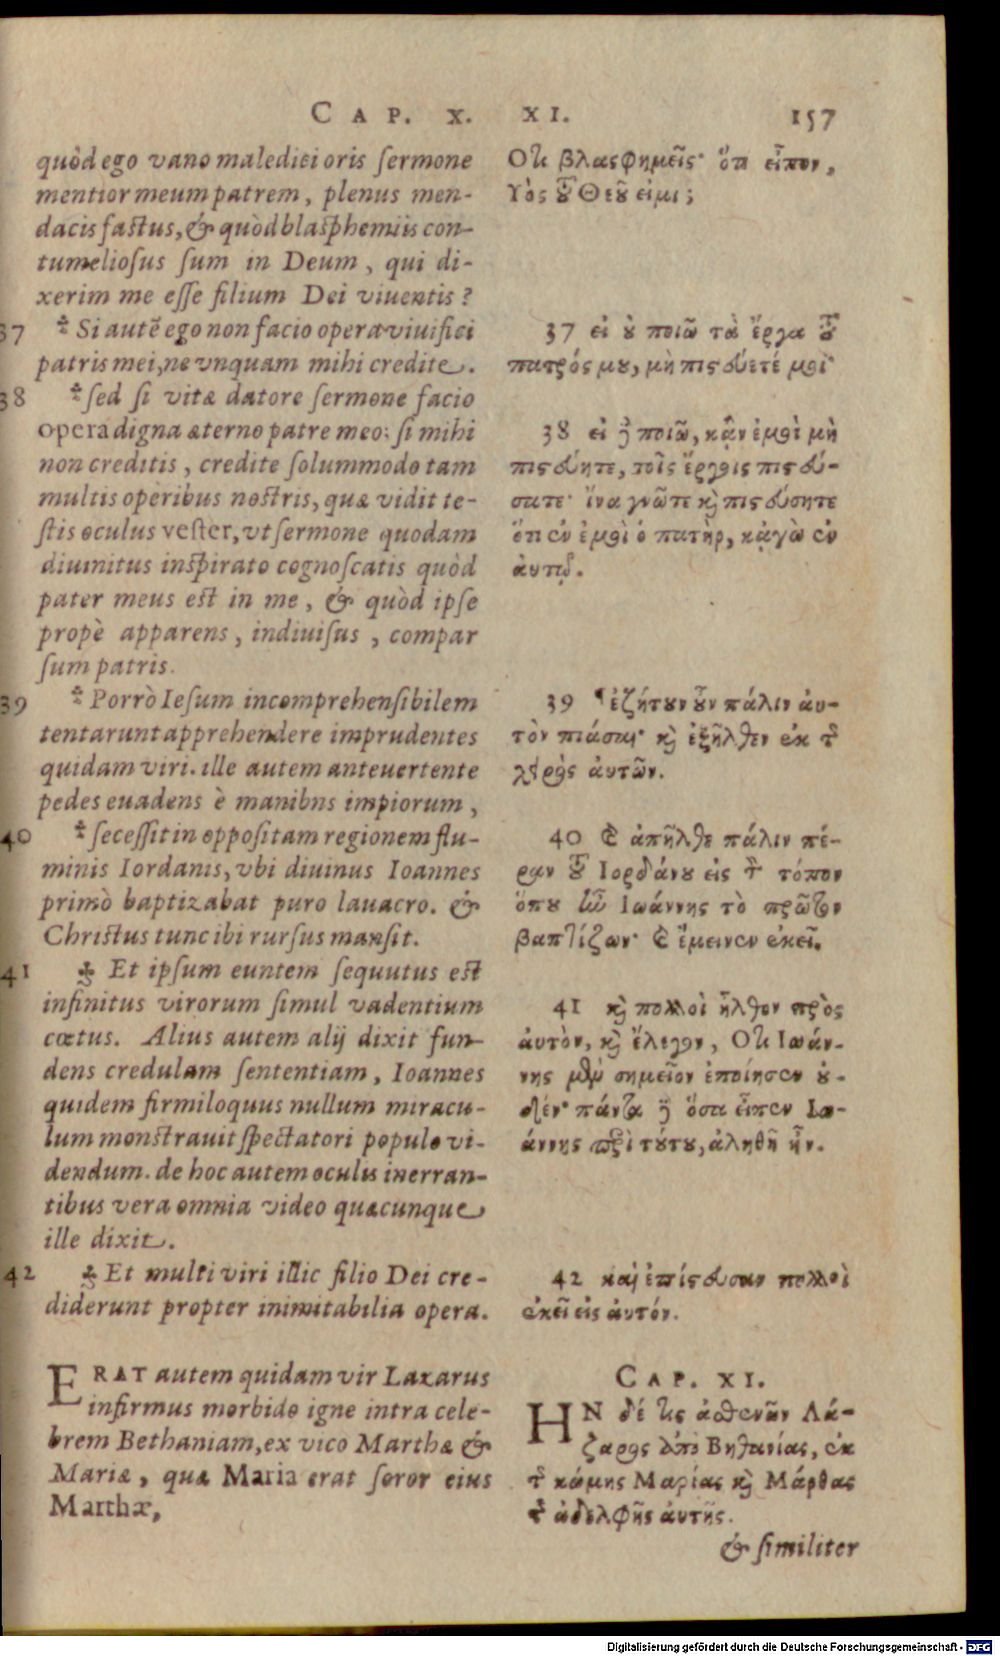 CAP. X. XI. 157
quòd ego vano maledici oris ſermone
mentior meum patrem, plenus men-
dacis faſtus, & quòd blaſphemiis con-
tumelioſus ſum in Deum, qui di-
xerim me eſſe filium Dei viuentis?
37 Si autẽ ego non facio opera viuifici
patris mei, ne vnquam mihi credite.
38 ſed ſi vitæ datore ſermone facio
opera digna æterno patre meo: ſi mihi
non creditis, credite ſolummodo tam
multis operibus noſtris, quæ vidit te-
ſtis oculus veſter, vt ſermone quodam
diuinitus inſpirato cognoſcatis quòd
pater meus eſt in me, & quòd ipſe
propè apparens, indiuiſus, compar
ſum patris.
39 Porrò Ieſum incomprehenſibilem
tentarunt apprehendere imprudentes
quidam viri. ille autem anteuertente
pedes euadens è manibns impiorum,
40 ſeceſſit in oppoſitam regionem flu-
minis Iordanis, vbi diuinus Ioannes
primò baptizabat puro lauacro. &
Chriſtus tunc ibi rurſus manſit.
41 Et ipſum euntem ſequutus eſt
infinitus virorum ſimul vadentium
cœtus. Alius autem alij dixit fun-
dens credulam ſententiam, Ioannes
quidem firmiloquus nullum miracu-
lum monſtrauit ſpectatori populo vi-
dendum. de hoc autem oculis inerran-
tibus vera omnia video quæcunque
ille dixit.
42 Et multi viri illic filio Dei cre-
diderunt propter inimitabilia opera.
ERAT autem quidam vir Lazarus
infirmus morbido igne intra cele-
brem Bethaniam, ex vico Marthæ &
Mariæ, quæ Maria erat ſoror eius
Marthæ,
Ὅτι βλασφημεῖς· ὅτι εἶπον,
Υἱὸς τοῦ Θεοῦ εἰμι;
37 εἰ οὐ ποιῶ τὰ ἔργα τοῦ
πατρός μου, μὴ πιστεύετέ μοι·
38 εἰ δὲ ποιῶ, κἂν ἐμοὶ μὴ
πιστεύητε, τοῖς ἔργοις πιστεύ-
σατε· ἵνα γνῶτε καὶ πιστεύσητε
ὅτι ἐν ἐμοὶ ὁ πατὴρ, κἀγὼ ἐν
αὐτῷ.
39 Ἐζήτουν οὖν πάλιν αὐ-
τὸν πιάσαι· καὶ ἐξῆλθεν ἐκ τῆς
χειρὸς αὐτῶν.
40 Καὶ ἀπῆλθε πάλιν πέ-
ραν τοῦ Ἰορδάνου εἰς τὸν τόπον
ὅπου ἦν Ἰωάννης τὸ πρῶτον
βαπτίζων· καὶ ἔμεινεν ἐκεῖ.
41 καὶ πολλοὶ ἦλθον πρὸς
αὐτὸν, καὶ ἔλεγον, Ὅτι Ἰωάν-
νης μὲν σημεῖον ἐποίησεν οὐ-
δέν· πάντα δὲ ὅσα εἶπεν Ἰω-
άννης περὶ τούτου, ἀληθῆ ἦν.
42 καὶ ἐπίστευσαν πολλοὶ
ἐκεῖ εἰς αὐτόν.
CAP. XI.
ΗΝ δέ τις ἀσθενῶν Λά-
ζαρος ἀπὸ Βηθανίας, ἐκ
τῆς κώμης Μαρίας καὶ Μάρθας
τῆς ἀδελφῆς αὐτῆς.
& ſimiliter
Digitalisierung gefördert durch die Deutsche Forschungsgemeinschaft - DFG